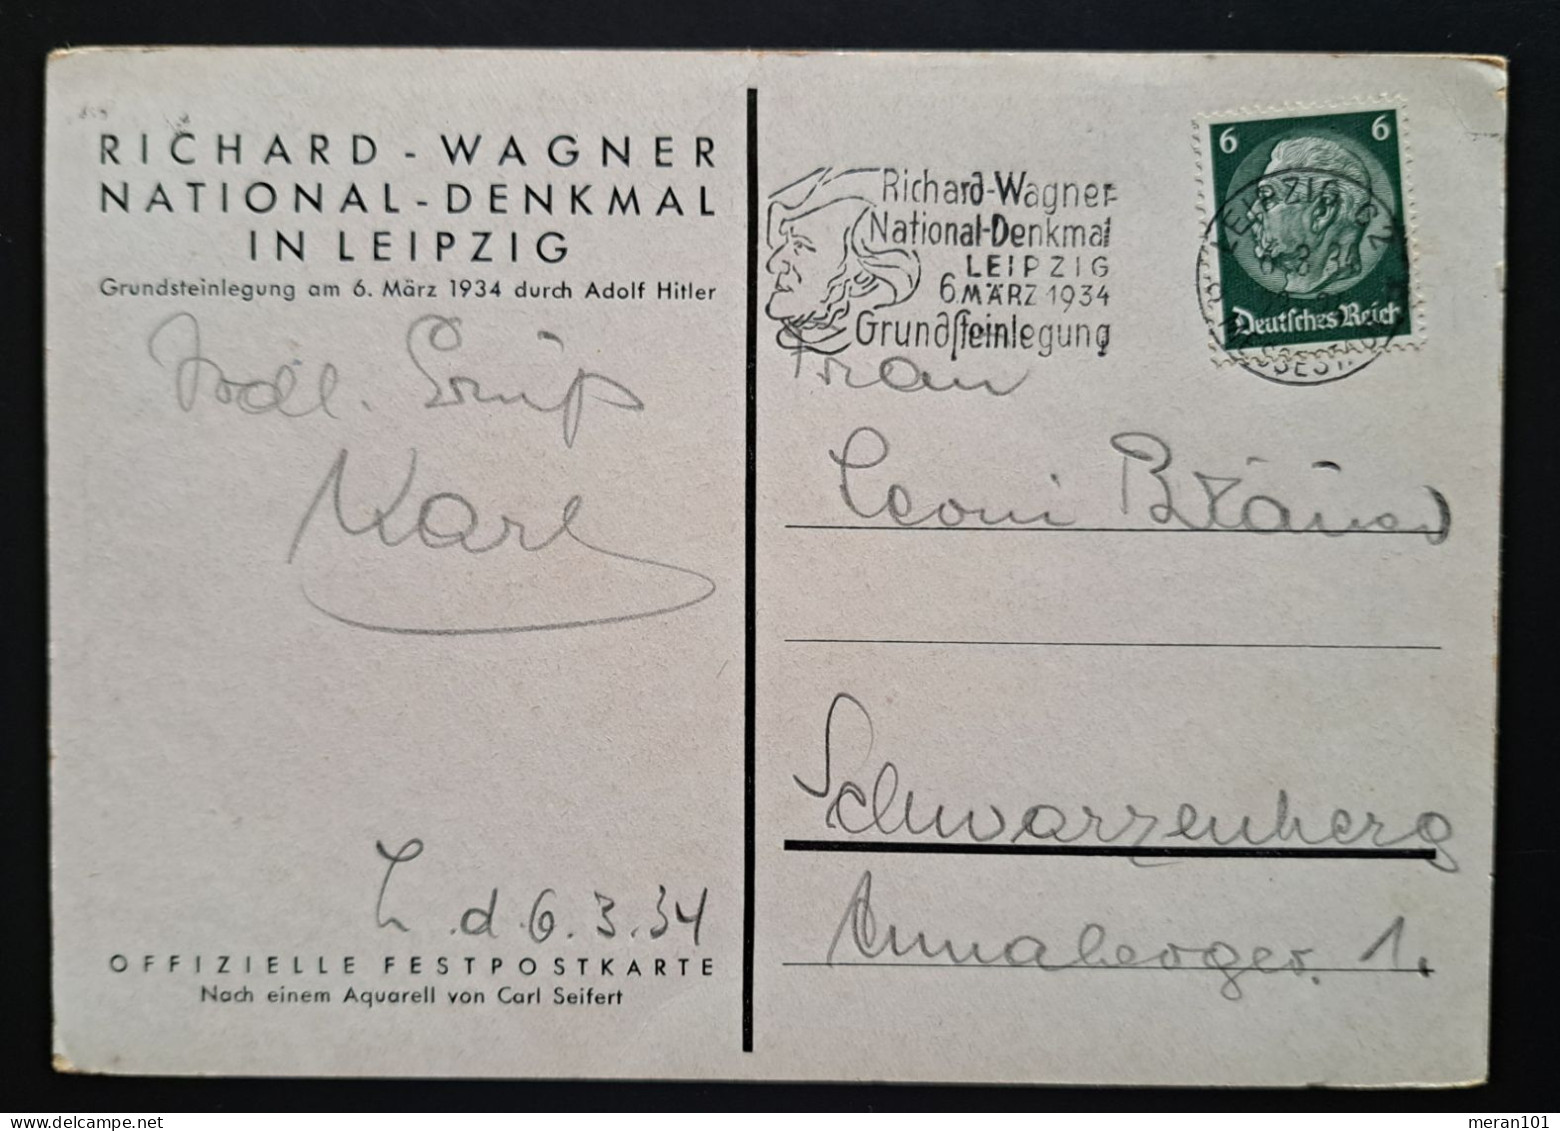 RICHARD - WAGNER
NATIONAL - DENKMAL
IN LEIPZIG
Grundsteinlegung am 6. März 1934 durch Adolf Hitler
Karl
L. d. 6. 3. 34
OFFIZIELLE FESTPOSTKARTE
Nach einem Aquarell von Carl Seifert
Richard-Wagner-
National-Denkmal
LEIPZIG
6. MÄRZ 1934
Grundsteinlegung
6 6
Deutsches Reich
LEIPZIG C2
Frau
Leoni
Schwarzenberg
Annabergers. 1.
meran101